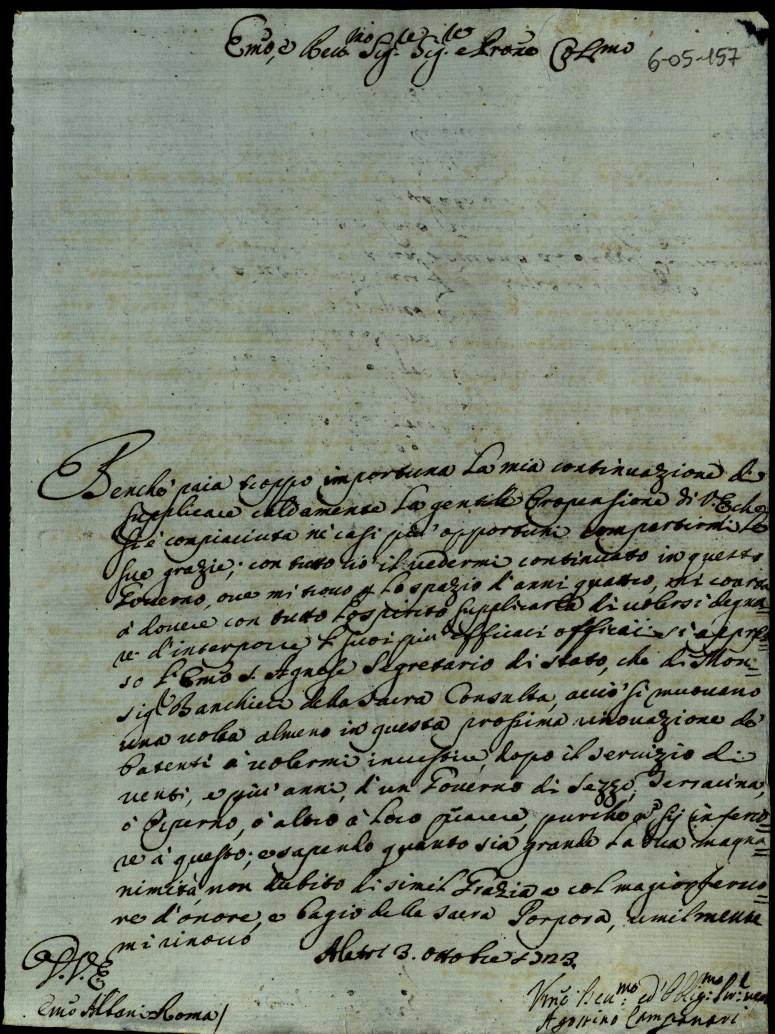 Emo, e Revmo Sig.re Sig.re e Prone Colmo
6-05-157
Benche paia troppo importuna la mia continuazione di
supplicare caldamente la gentile Propensione di V. E. che
si è conpiaciuta ne casi piu' opportuni compartirmi le
sue grazie; con tutto cio' il vedermi continuato in questo
Governo, ove mi trovo p lo spazio d'anni quattro, mi
à dovere con tutto lo spirito supplicarla di volersi degna=
re d'interporre li suoi più efficaci officii si appres=
so l'Emo S. Agnese Segretario di stato, che di Mon=
sig.r Banchieri della Sacra Consulta, acciò si muoveno
una volta almeno in questa prossima rinovazione de
Patenti à volermi investire, dopo il servizio di
venti, e piu' anni, d'un Governo di Sezze, Terracina,
ò Piperno, ò altro à loro piacere, purche sij inferio=
re à questo; e sapendo quanto sia grande la sua magna=
nimità, non dubito di simil Grazia e col magior fervo=
re d'onore, e bagio della Sacra Porpora, umilmente
mi rinovo
Alatri 3. Ottobre 1723.
V. E.
Emo Albani Roma/
Vmo Devmo ed Obligmo
Agostino Campanari